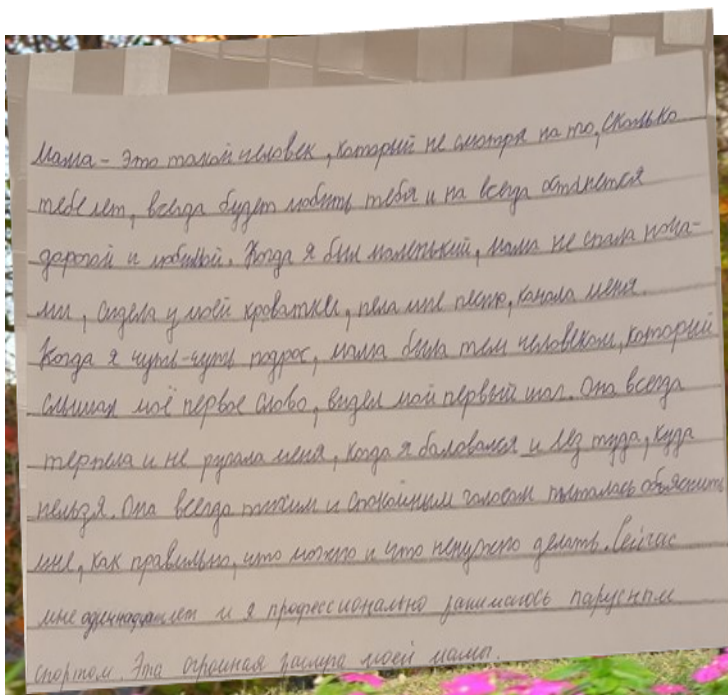 Мама - это такой человек, который не смотря на то, сколько
тебе лет, всегда будет любить тебя и на всегда останется
дорогой и любимой. Когда я был маленький, мама не спала ноча-
ми, сидела у моей кроватки, пела мне песню, качала меня.
Когда я чуть-чуть подрос, мама была тем человеком, который
слышал моё первое слово, видел мой первый шаг. Она всегда
терпела и не ругала меня, когда я баловался и лез туда, куда
нельзя. Она всегда тихим и спокойным голосом пыталась объяснить
мне, как правильно, что можно и что ненужно делать. Сейчас
мне одиннадцать лет и я профессионально занимаюсь парусным
спортом. Эта огромная заслуга моей мамы.